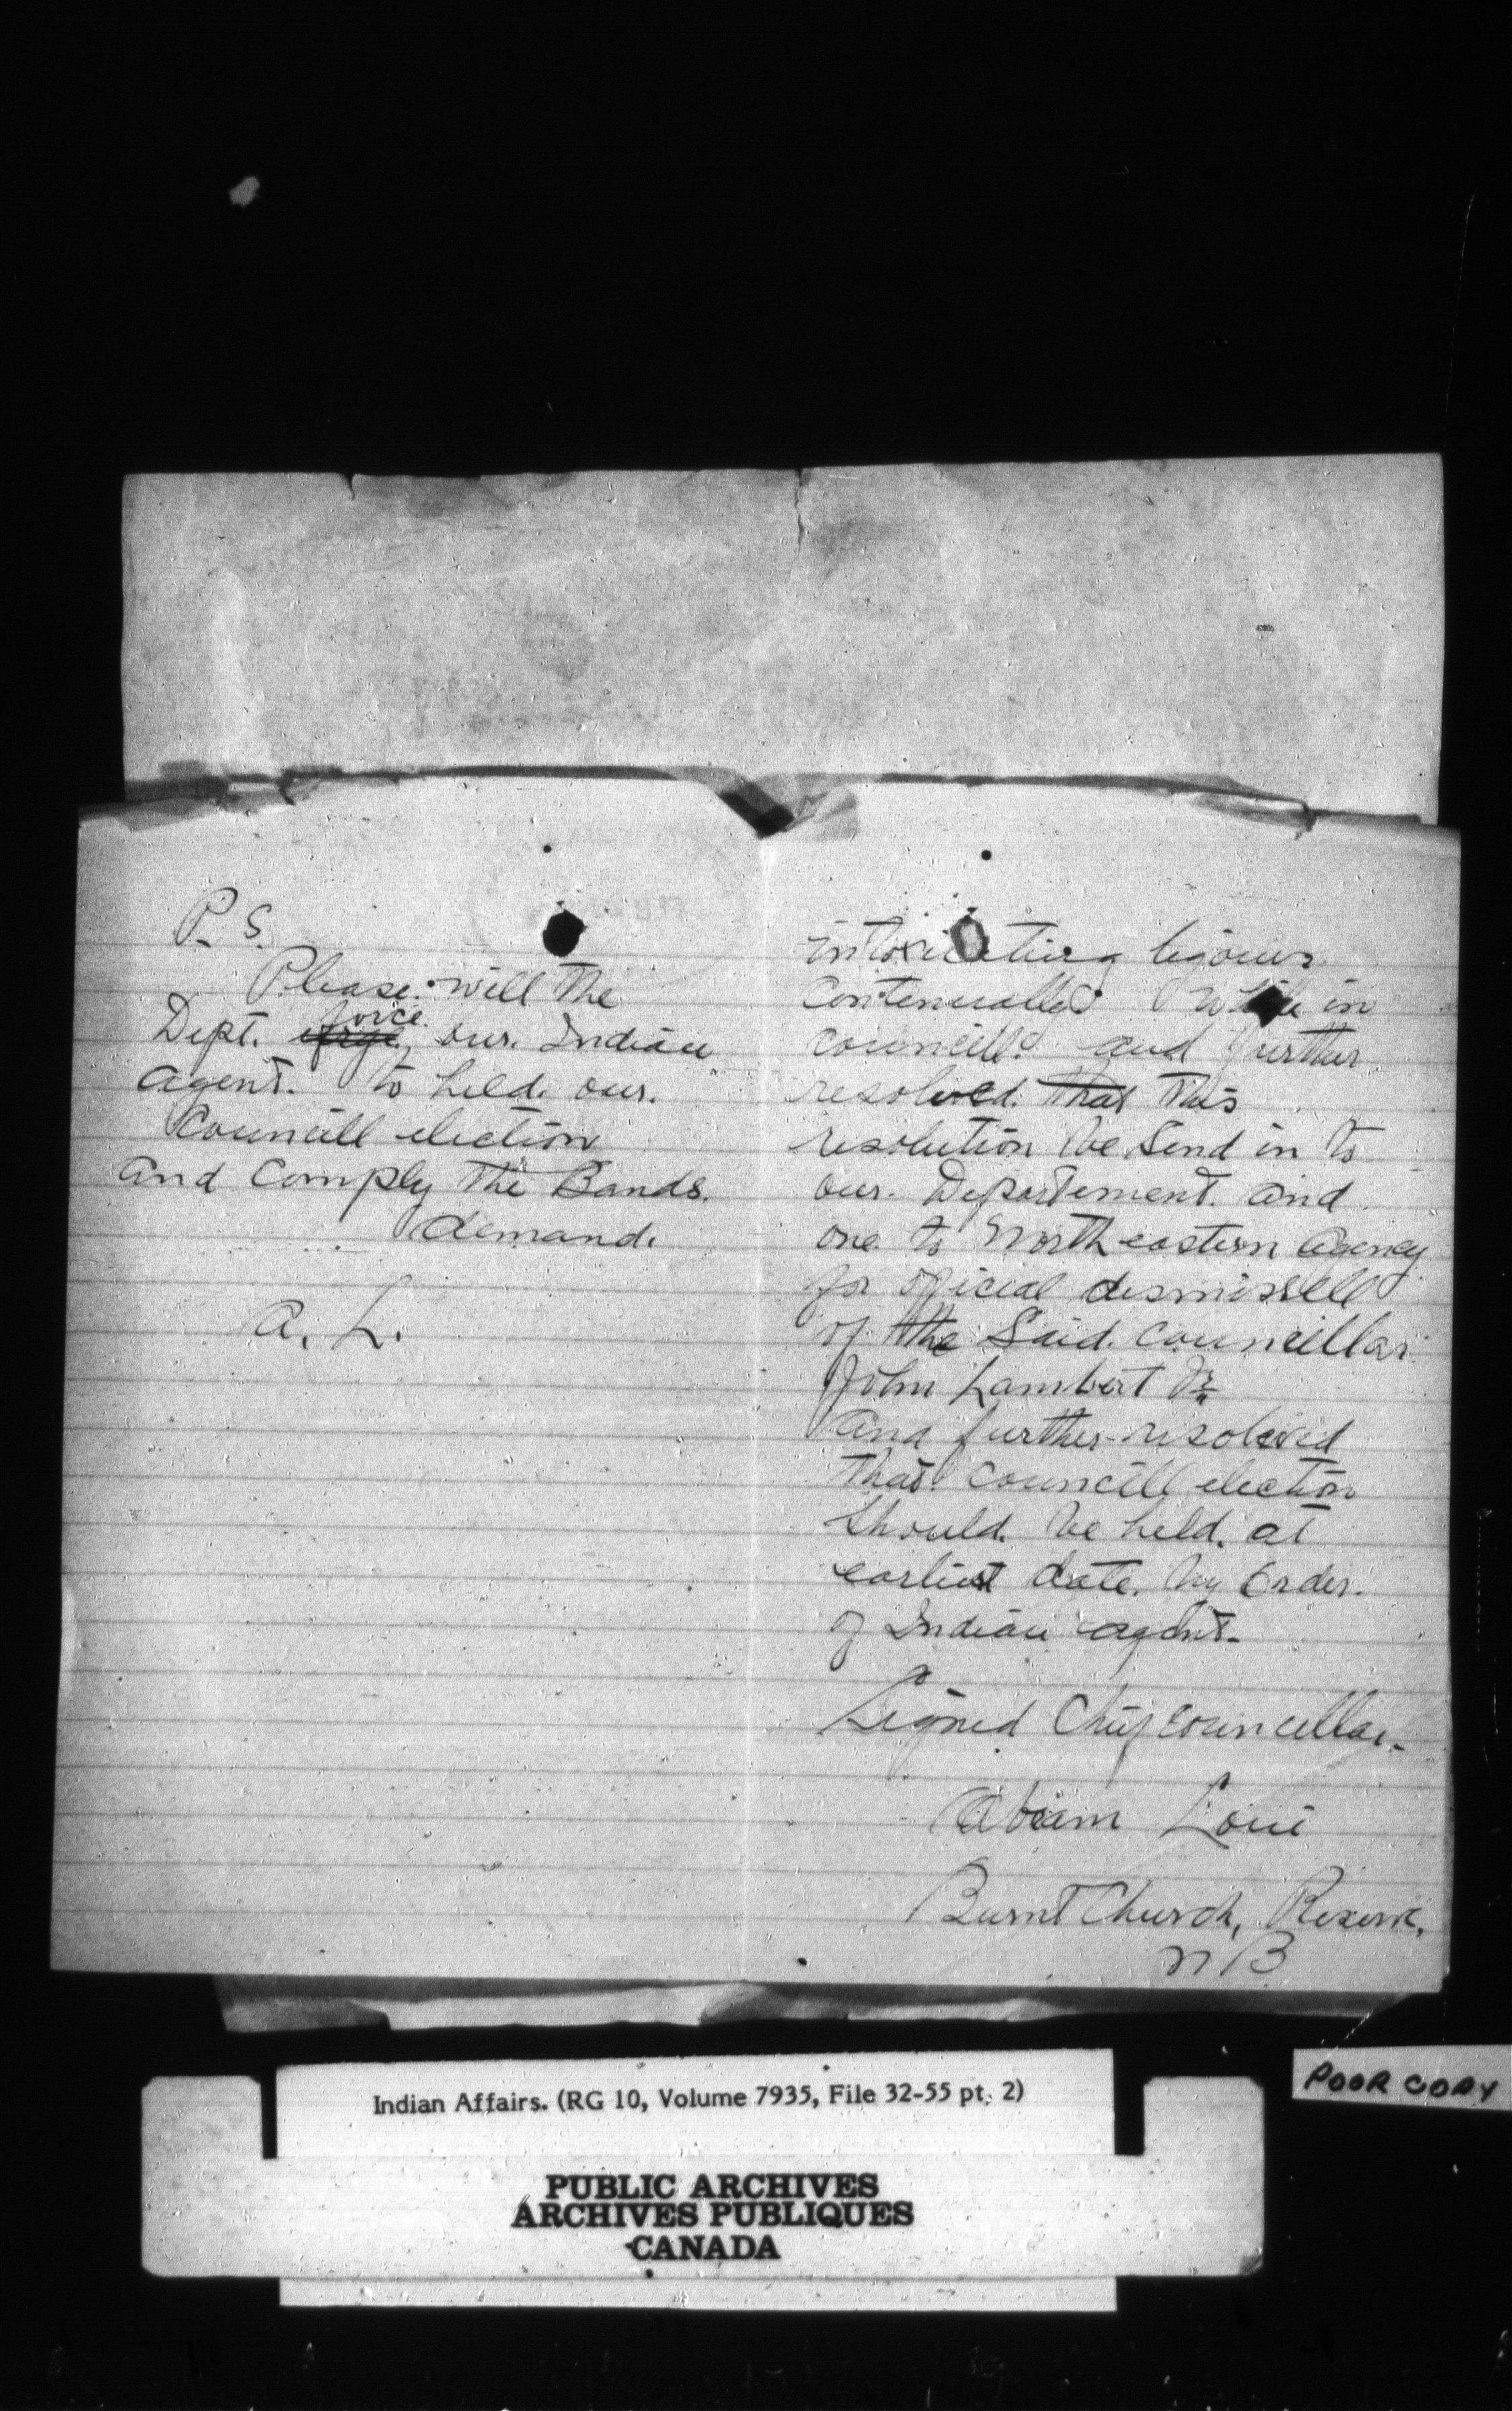 P. S.
Please. will the
force.
Dept. urge, our. Indian
agent. to held. our.
Councill election
and Comply the Bands.
demand.
A. L.
intoxicating liqours
contenualled while in
councill. and further
resolved. that this
resolution be send in to
our. Departement. and
one to North eastern Agency
for oficial dismissell
of the Said. Councillar
John Lambert Jr.
and further resolved
that. Councill election
should. be held. at
earliest date. by order.
of Indian agent.
Signed Chief councellar.
Abram Loui
Burnt Church, Reserve,
N B
POOR COPY
Indian Affairs. (RG 10, Volume 7935, File 32-55 pt. 2)
PUBLIC ARCHIVES
ARCHIVES PUBLIQUES
CANADA